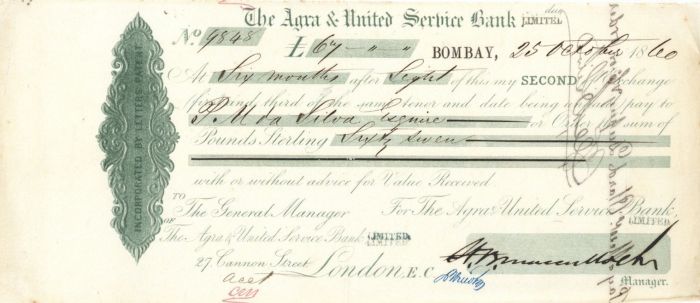 The Agra & United Service Bank LIMITED
No 9848 £ 67 " " BOMBAY, 25 October 1860
At Six months after Sight of this my SECOND of Exchange
first and third of the same tenor and date being unpaid pay to
P. M da Silva Esquire or Order the sum of
Pounds Sterling Sixty seven
with or without advice for Value Received
TO The General Manager For The Agra & United Service Bank, LIMITED
OF The Agra & United Service Bank LIMITED LIMITED
27, Cannon Street London E.C.
Manager.
INCORPORATED BY LETTERS PATENT